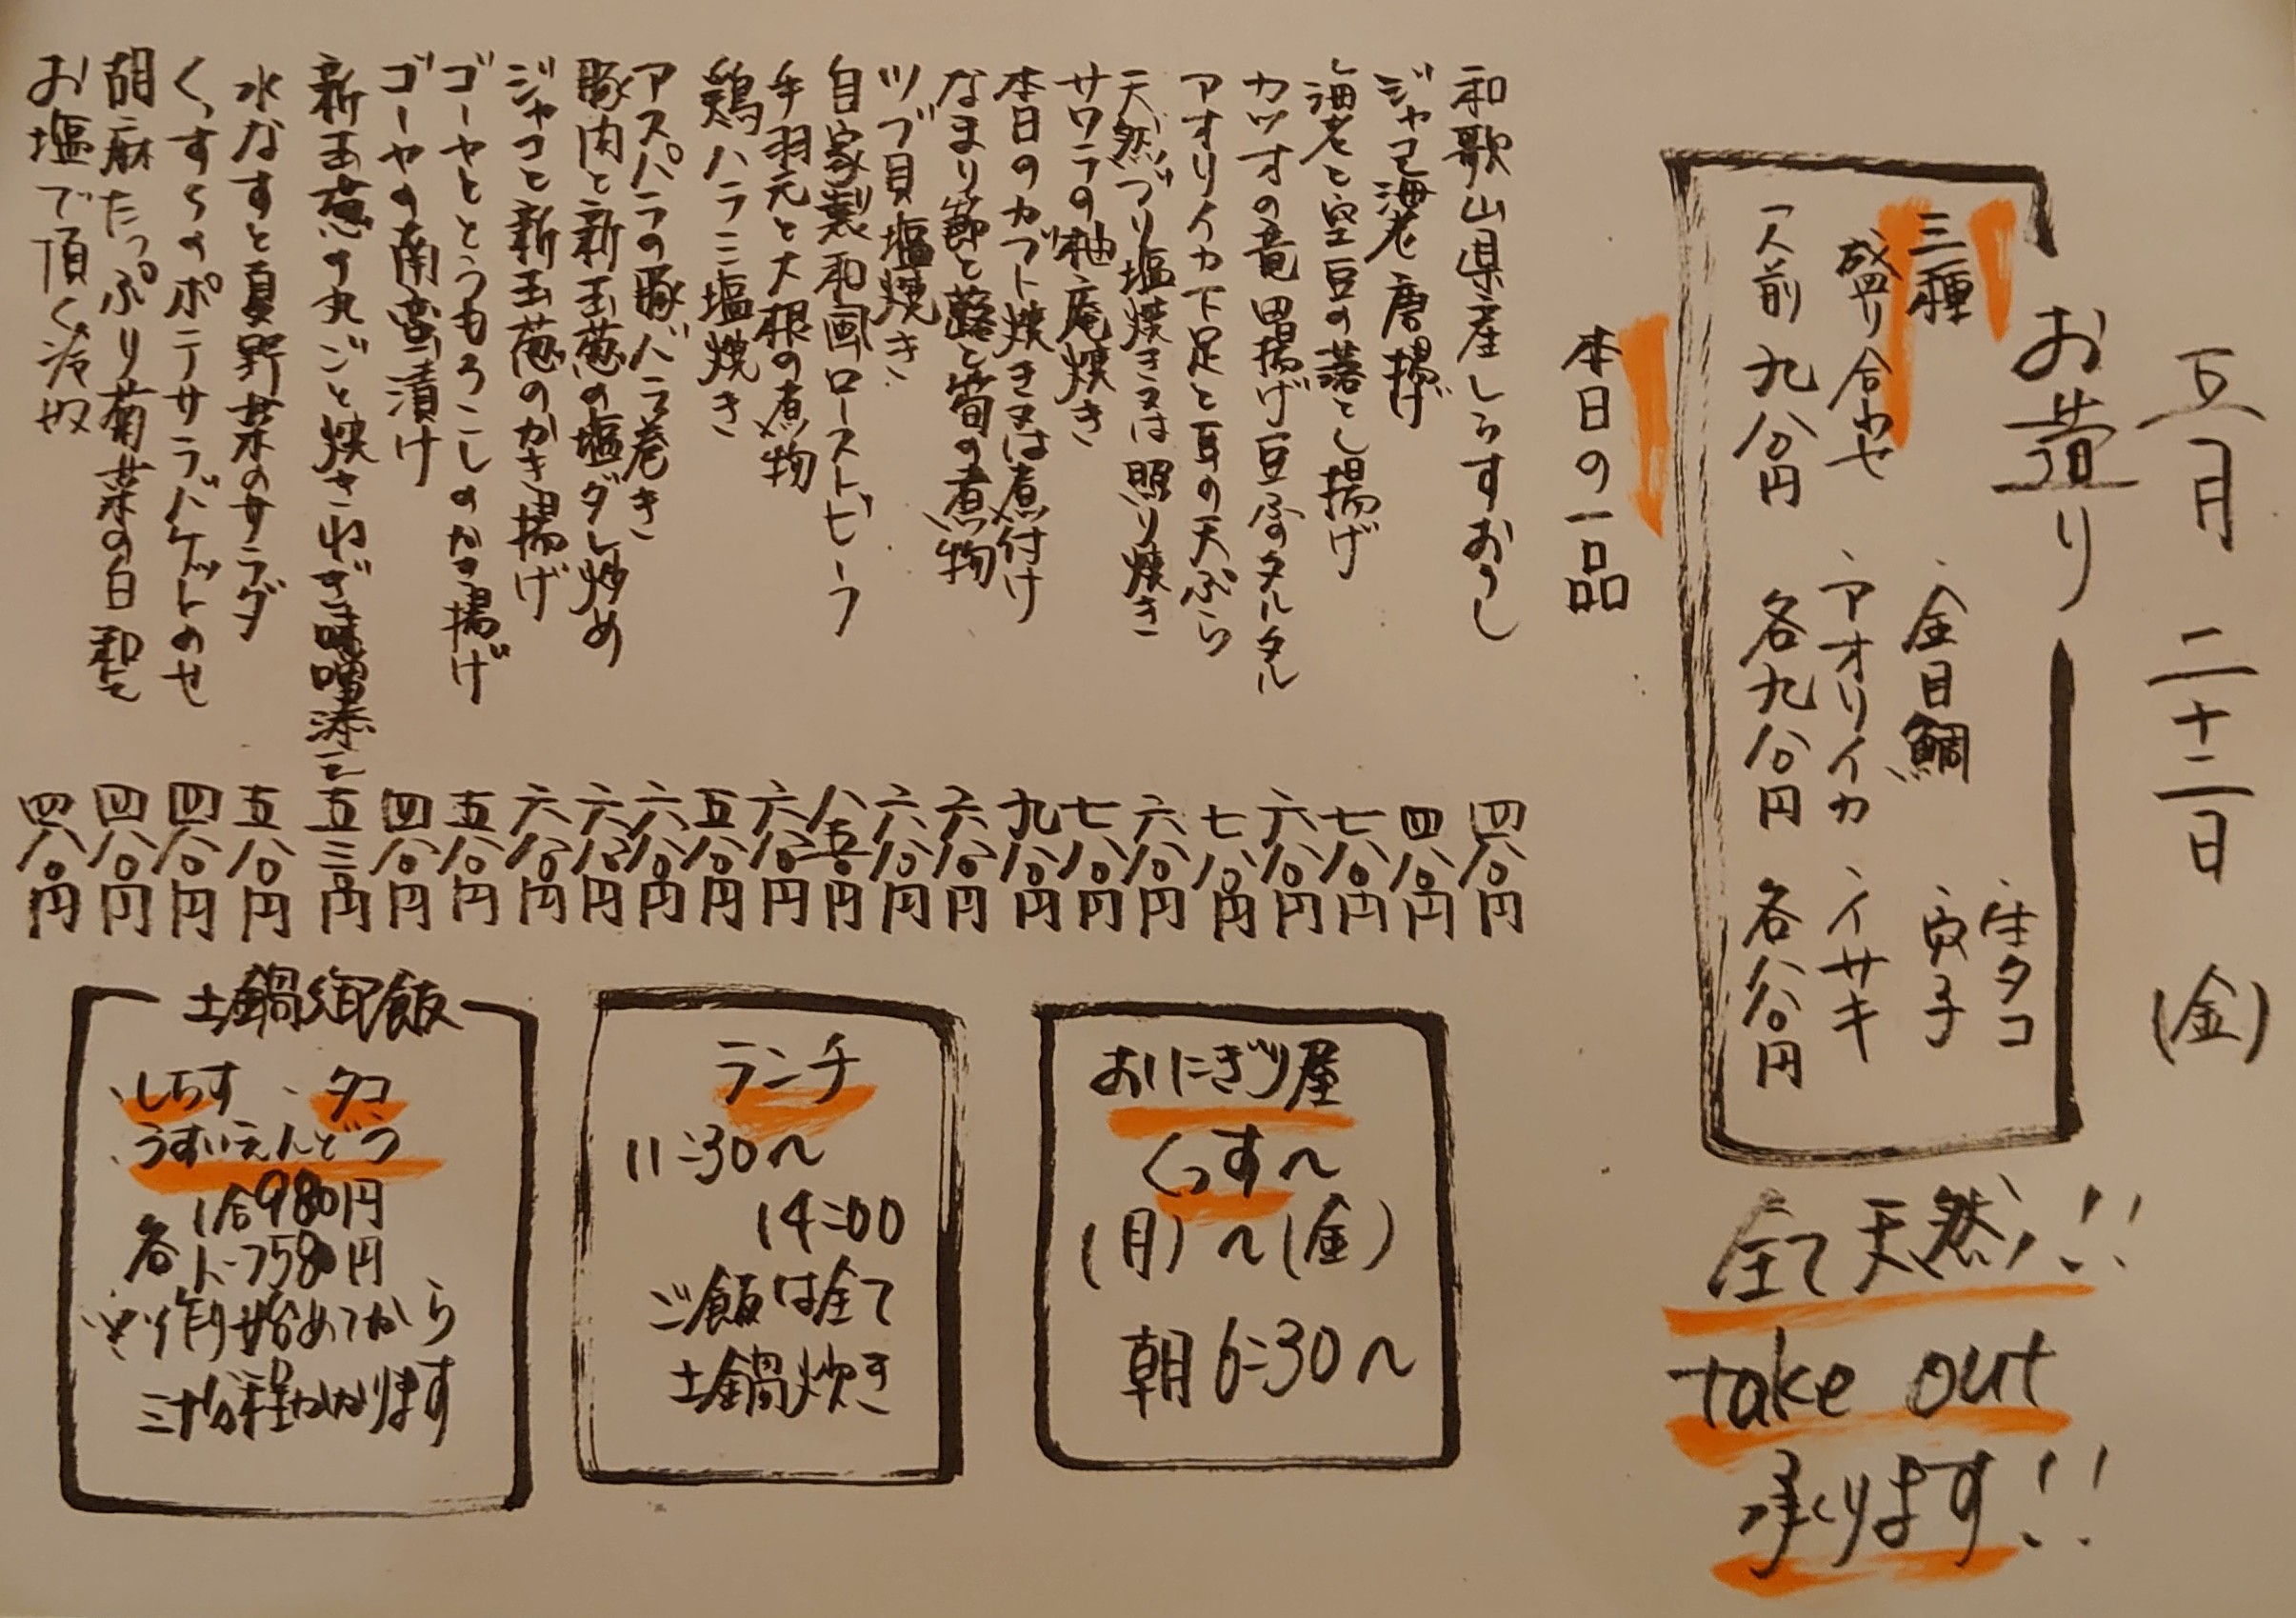 五月 二十二日 (金)
お造り
三種
盛り合わせ
一人前 九八〇円
、金目鯛
、アオリイカ
各九八〇円
、生タコ
、穴子
、イサキ
各八八〇円
全て天然!!
take out
承ります!!
本日の一品
和歌山県産しらすおろし 四八〇円
ジャコ海老唐揚げ 四八〇円
海老と空豆の落とし揚げ 七八〇円
カツオの竜田揚げ豆腐のタルタル 六八〇円
アオリイカ下足と耳の天ぷら 七八〇円
天然ブリ塩焼き又は照り焼き 六八〇円
サワラの柚庵焼き 七八〇円
本日のカブト焼き又は煮付け 九八〇円
なまり節と蕗と筍の煮物 六八〇円
ツブ貝塩焼き 六八〇円
自家製和風ローストビーフ 八五〇円
手羽元と大根の煮物 六八〇円
鶏ハラミ塩焼き 五八〇円
アスパラの豚バラ巻き 六八〇円
豚肉と新玉葱の塩ダレ炒め 六八〇円
ジャコと新玉葱のかき揚げ 六八〇円
ゴーヤととうもろこしのかき揚げ 五八〇円
ゴーヤの南蛮漬け 四八〇円
新玉葱の丸ごと焼きねぎ味噌添え 五三〇円
水なすと夏野菜のサラダ 五八〇円
くっすんのポテサラバゲットのせ 四八〇円
胡麻たっぷり菊菜の白和え 四八〇円
お塩で頂く冷奴 四八〇円
おにぎり屋
くっすん
(月)〜(金)
朝6:30〜
ランチ
11:30〜
14:00
ご飯は全て
土鍋炊き
土鍋御飯
、しらす 、タコ
、うすいえんどう
各 1合980円
ハーフ580円
※作り始めてから
三十分程かかります